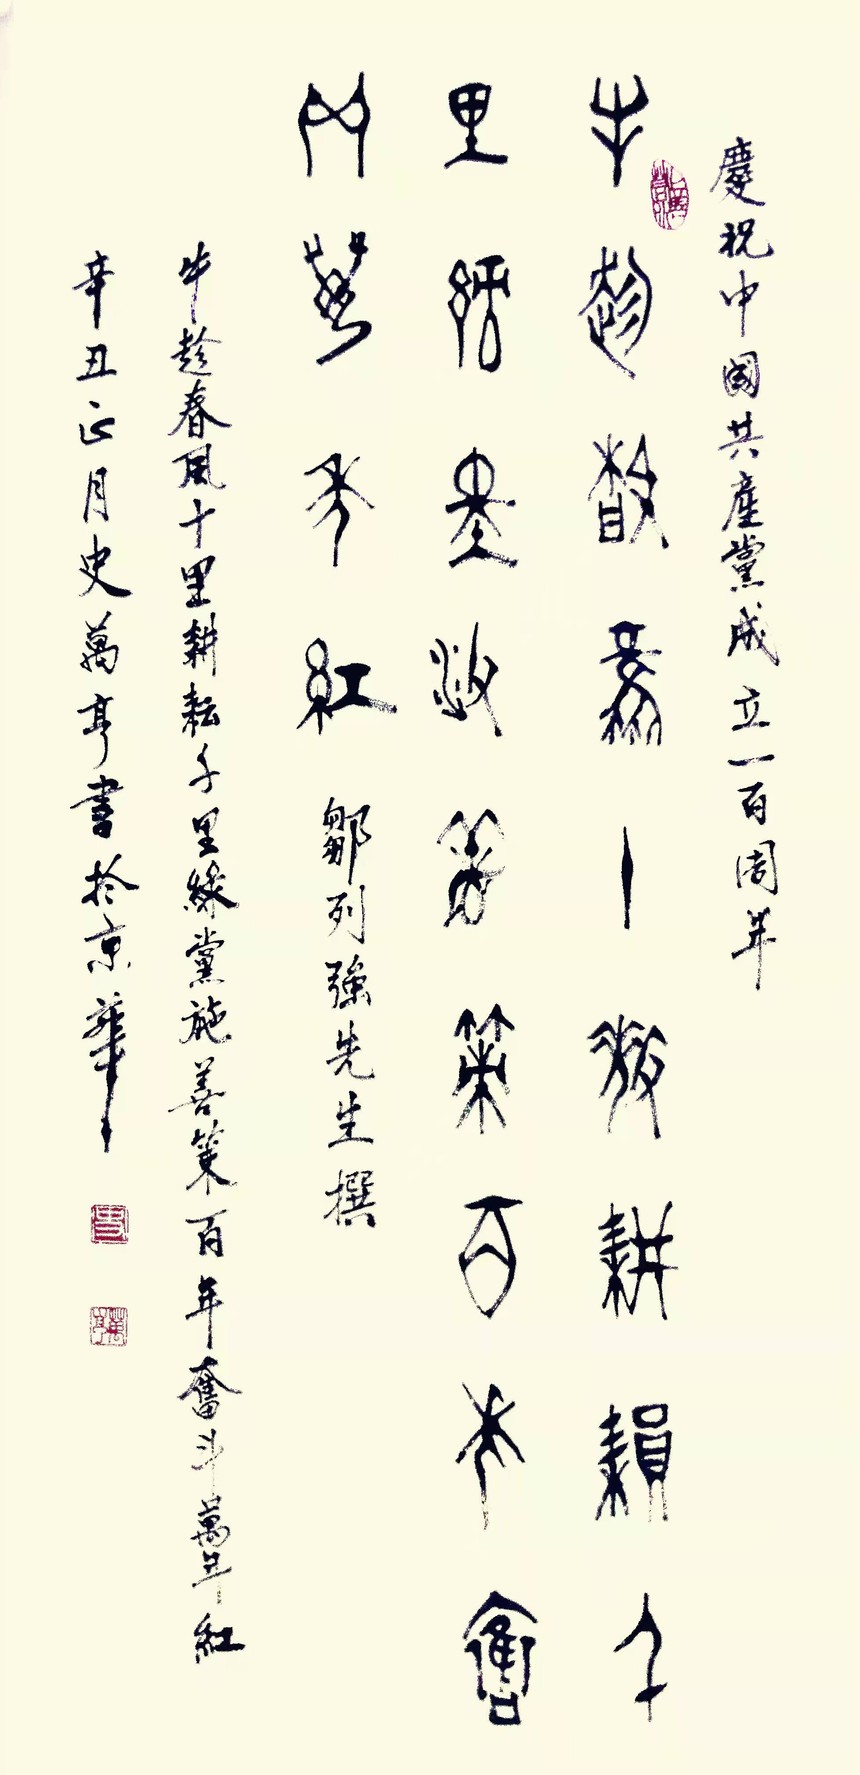 慶祝中國共產黨成立一百周年
牛趁春風十里耕耘千
里緑黨施善策百年奮
鬥萬年紅 鄒列強先生撰
牛趁春風十里耕耘千里緑黨施善策百年奮斗萬年紅
辛丑正月史萬亭書於京華